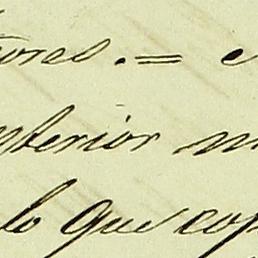 ores. =
nterior m
lo que cop